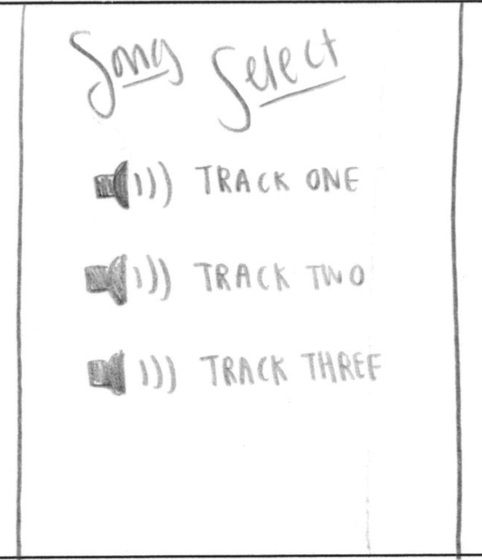 Song Select
TRACK ONE
TRACK TWO
TRACK THREE